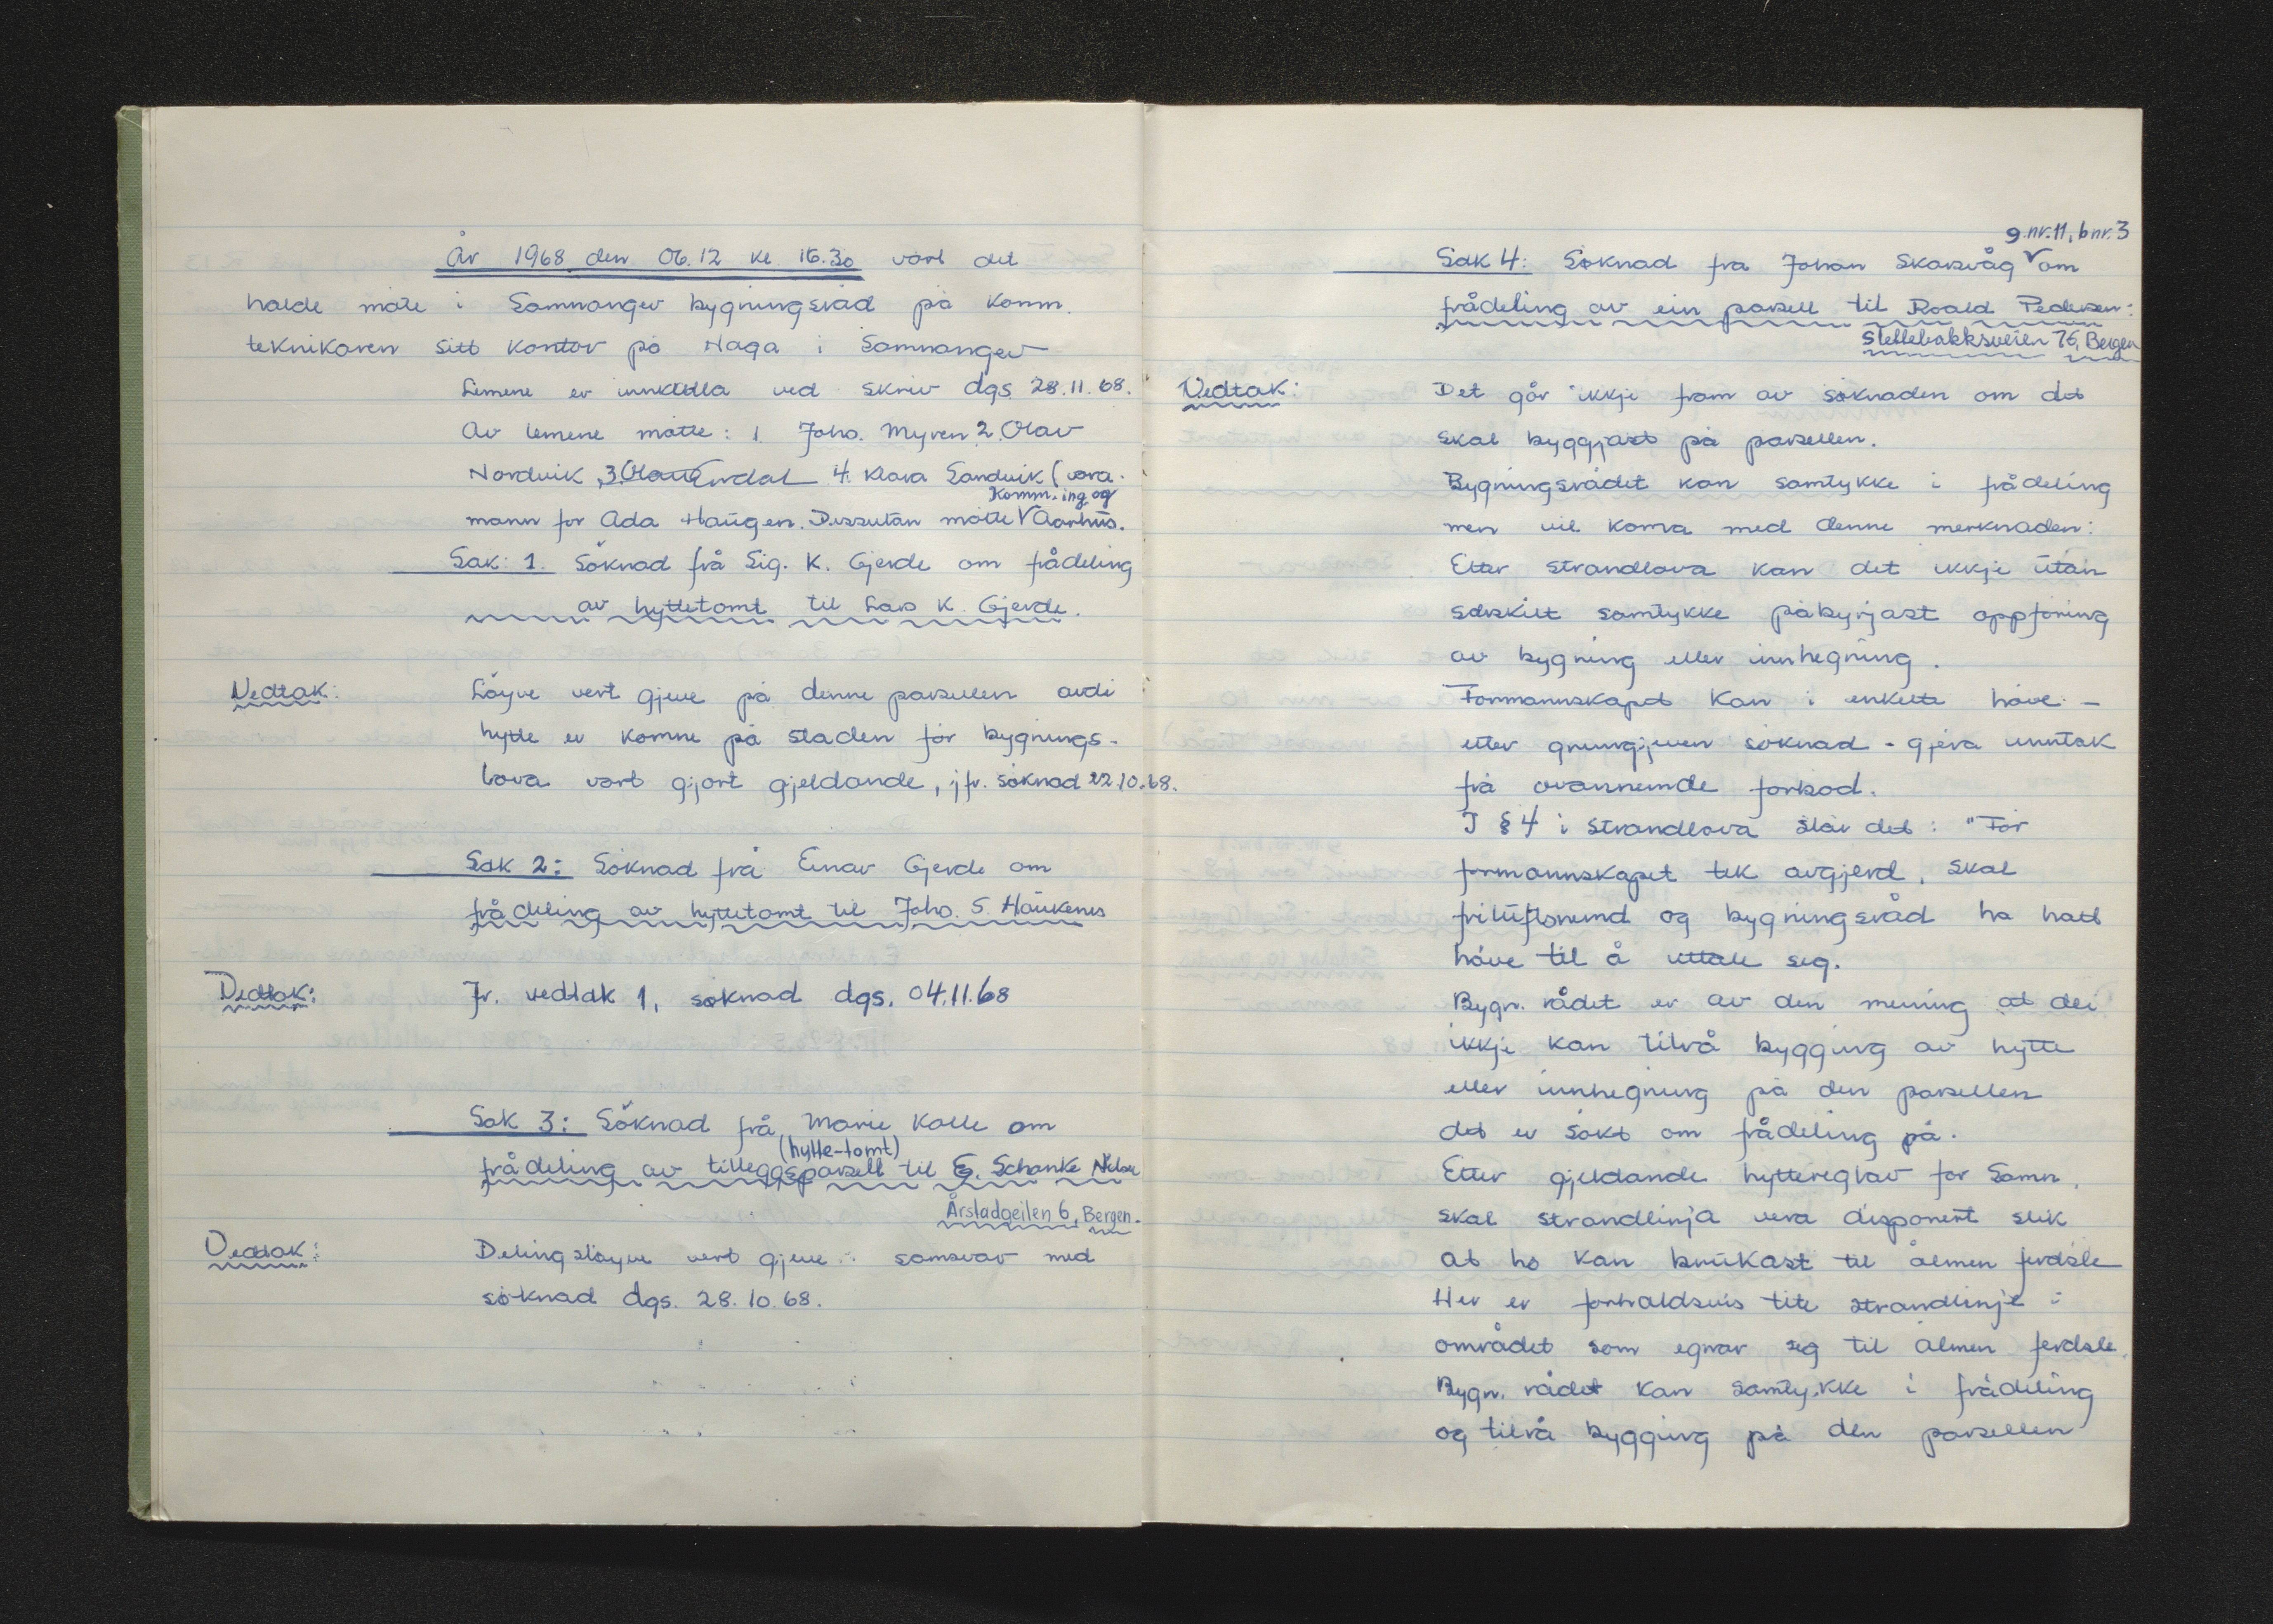 År 1968 den 06.12 kl. 16.30 vart det
halde møte i Samnanger bygningsråd på komm.
teknikaren sitt kontor på Haga i Samnanger
Lemene er innkalla ved skriv dgs. 28.11.68.
Av lemene møtte: 1. Johs. Myren 2. Olav
Nordvik, 3. Olav Erdal 4. Klara Sandvik (vara-
Komm. ing og
mann for Ada Haugen. Dessutan møtte Aarhus.
Sak: 1. Søknad frå Sig. K. Gjerde om frådeling
av hyttetomt til Lars K. Gjerde.
Vedtak: Løyve vert gjeve på denne parsellen avdi
hytte er komne på staden før bygnings-
lova vart gjort gjeldande, jfr. søknad 22.10.68.
Sak 2: Søknad frå Einar Gjerde om
frådeling av hyttetomt til Johs. S. Haukenes
Vedtak: Jr. vedtak 1, søknad dgs. 04.11.68
Sak 3: Søknad frå Marie Kolle om
(hytte-tomt)
frådeling av tilleggsparsell til G. Schanke Nilsen
Årstadgeilen 6, Bergen.
Vedtak: Delingsløyve vert gjeve i samsvar med
søknad dgs. 28.10.68.
g.nr. 11, bnr. 3
Sak 4: Søknad fra Johan Skarsvåg om
frådeling av ein parsell til Roald Pedersen:
Slettebakksveien 76, Bergen
Vedtak: Det går ikkje fram av søknaden om det
skal byggjast på parsellen.
Bygningsrådet kan samtykke i frådeling
men vil koma med denne merknaden:
Etter strandlova kan det ikkje utan
særskilt samtykke påbyrjast oppføring
av bygning eller innhegning.
Formannskapet kan i enkelte høve -
etter grunngjeven søknad - gjera unntak
frå ovannemnde forbod.
I § 4 i strandlova står det: "Før
formannskapet tek avgjerd, skal
friluftsnemnd og bygningsråd ha hatt
høve til å uttale seg.
Bygn. rådet er av den mening at dei
ikkje kan tilrå bygging av hytte
eller innhegning på den parsellen
det er søkt om frådeling på.
Etter gjeldande hyttereglar for Samn.
skal strandlinja vera disponert slik
at ho kan brukast til ålmen ferdsle
Her er forhaldsvis lite strandlinje i
området som egnar seg til ålmen ferdsle.
Bygn. rådet kan samtykke i frådeling
og tilrå bygging på den parsellen